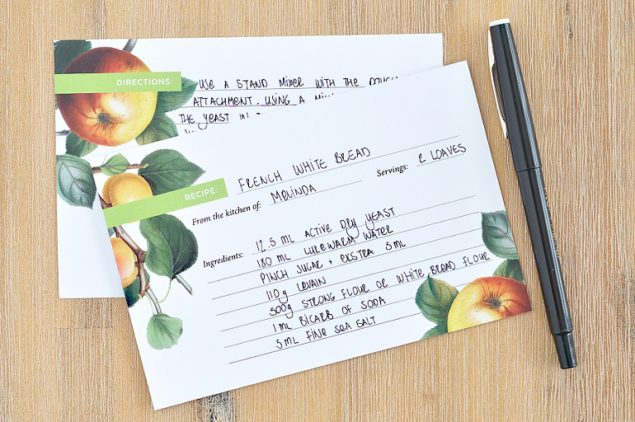 DIRECTIONS: USE A STAND MIXER WITH THE DOUGH
ATTACHMENT. USING A
THE YEAST IN
RECIPE: FRENCH WHITE BREAD
From the kitchen of: MOLINDA Servings: 2 LOAVES
Ingredients: 12.5 ML ACTIVE DRY YEAST
180 ML LUKEWARM WATER
PINCH SUGAR + EXTRA 5 ML
110g LEVAIN
500g STRONG FLOUR OR WHITE BREAD FLOUR
1 ML BICARB OF SODA
5 ML FINE SEA SALT